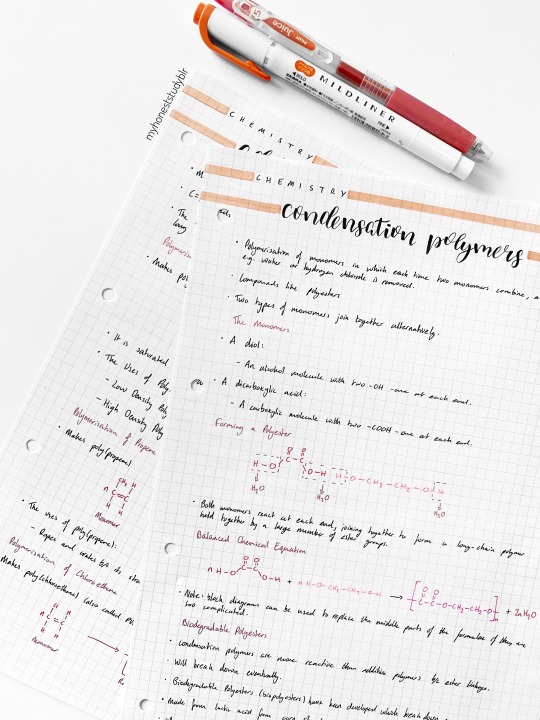 Juice
MILDLINER
myhoneststudyblr
CHEMISTRY
CHEMISTRY
condensation polymers
• Polymerisation of monomers in which each time two monomers combine, a
e.g. water or hydrogen chloride is removed.
· Compounds like polyesters
• Two types of monomers join together alternatively.
The Monomers
• A diol:
- An alcohol molecule with two -OH -one at each end.
• A dicarboxylic acid:
- A carboxylic molecule with two -COOH - one at each end.
Forming a Polyester
O O
C - C
H - O
O - H
H - O - CH₂ - CH₂ - O - H
H₂O
H₂O
H₂O
• Both monomers react at each end, joining together to form a long-chain polymer
held together by a large number of ester groups.
Balanced Chemical Equation
n H-O C-C O-H + n H-O-CH₂-CH₂-O-H → [C-C-O-CH₂-CH₂-O] + 2nH₂O
• Note: block diagrams can be used to replace the middle parts of the formulae if they are
too complicated.
Biodegradable Polyesters
• Condensation polymers are more reactive than addition polymers b/c ester linkage.
- Will break down eventually.
• Biodegradable Polyesters (biopolyesters) have been developed which break down
• Made from lactic acid from corn
• The
long
• Makes pol
• It is saturated
• The Uses of Poly
- Low Density Pol
- High Density Poly
Polymerisation of Propene
• Makes poly(propene)
CH₃ H
n C = C
H H
Monomer
• The uses of poly(propene):
- Ropes and crates b/c its stro
Polymerisation of Chloroethene
Makes poly(chloroethene) (also called PV
Cl H
n C = C
H H
Monomer